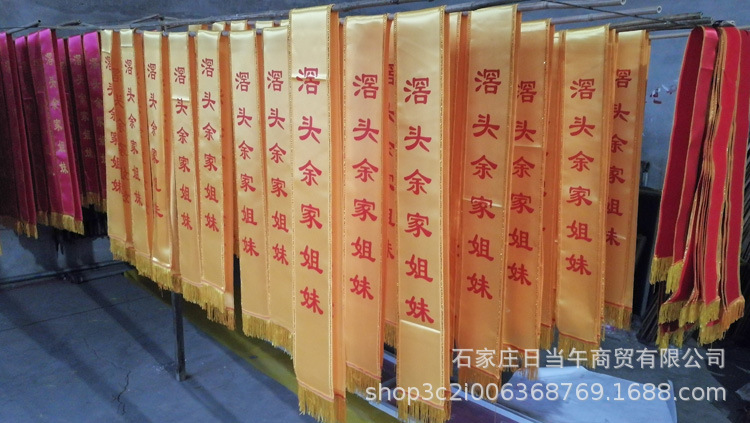 滘头余家姐妹
滘头余家姐妹
滘头余家姐妹
滘头余家姐妹
滘头余家姐妹
滘头余家姐妹
滘头余家姐妹
滘头余家姐妹
滘头余家姐妹
滘头余家姐妹
滘头余家姐妹
滘头余家姐妹
滘头余家姐妹
石家庄日当午商贸有限公司
shop3c2i006368769.1688.com